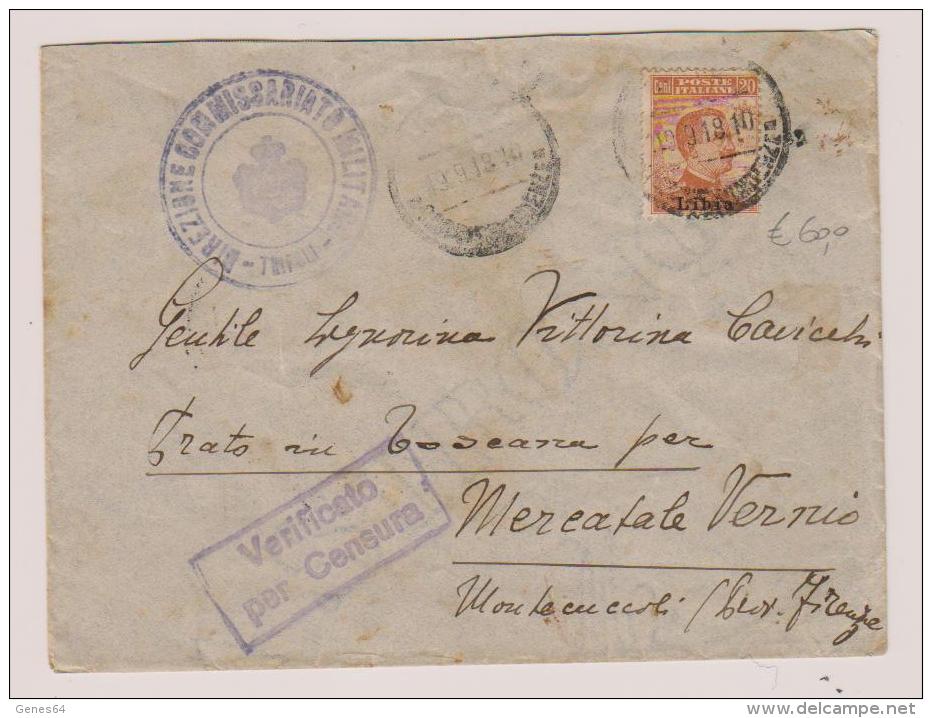 DIREZIONE COMMISSARIATO MILITARE - TRIPOLI -
19.9.18.10
Cent. POSTE ITALIANE 20
19.9.18.10
Libia
€ 60,0
Gentile Signorina Vittorina Cavicchi
Prato in Toscana per
Mercatale Vernio
Montecuccoli (Prov. Firenze
Verificato
per Censura
Genes64
www.delcampe.net